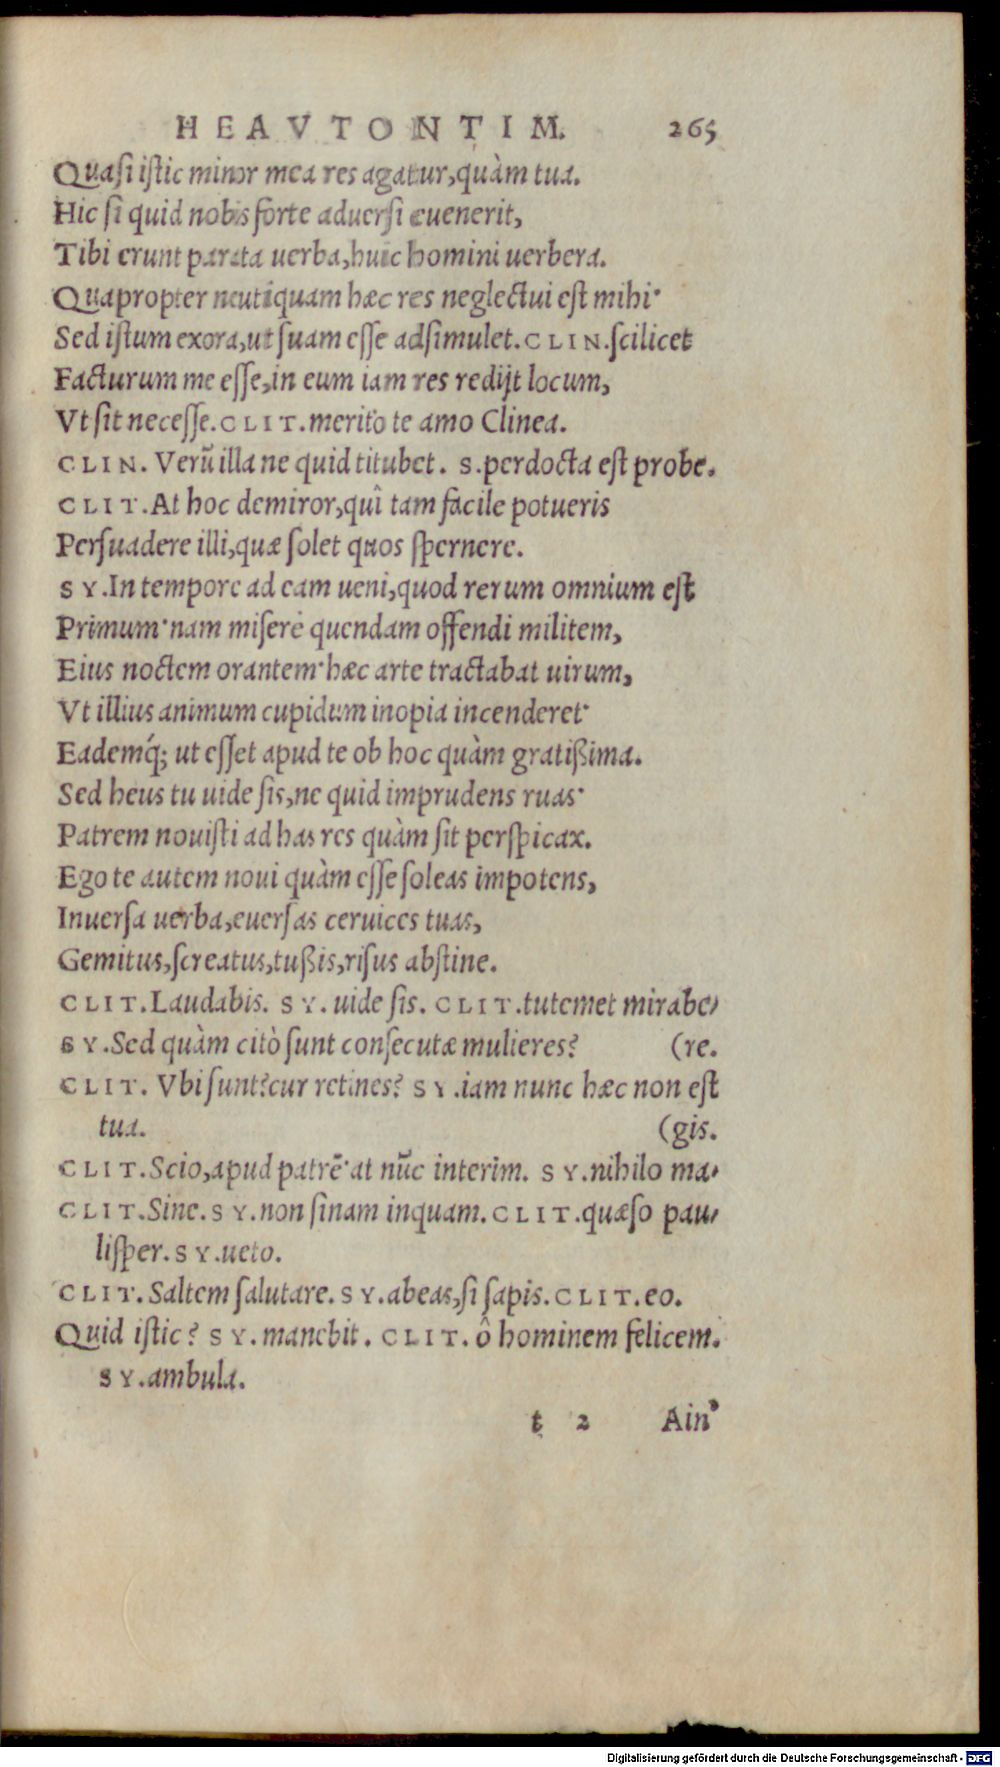 HEAVTONTIM. 265
Quasi istic minor mea res agatur,quàm tua.
Hic si quid nobis forte aduersi euenerit,
Tibi erunt parata uerba,huic homini uerbera.
Quapropter neutiquam hæc res neglectui est mihi·
Sed istum exora,ut suam esse adsimulet.CLIN.scilicet
Facturum me esse,in eum iam res redijt locum,
Vt sit necesse.CLIT.merito te amo Clinea.
CLIN. Verũ illa ne quid titubet. S.perdocta est probe.
CLIT.At hoc demiror,quî tam facile potueris
Persuadere illi,quæ solet quos spernere.
SY.In tempore ad eam ueni,quod rerum omnium est
Primum·nam miserè quendam offendi militem,
Eius noctem orantem·hæc arte tractabat uirum,
Vt illius animum cupidum inopia incenderet·
Eademq́; ut esset apud te ob hoc quàm gratißima.
Sed heus tu uide sis,ne quid imprudens ruas·
Patrem nouisti ad has res quàm sit perspicax.
Ego te autem noui quàm esse soleas impotens,
Inuersa uerba,euersas ceruices tuas,
Gemitus,screatus,tußis,risus abstine.
CLIT.Laudabis. SY. uide sis. CLIT.tutemet mirabe-
SY.Sed quàm citò sunt consecutæ mulieres? (re.
CLIT. Vbi sunt?cur retines? SY.iam nunc hæc non est
tua. (gis.
CLIT.Scio,apud patrẽ·at nũc interim. SY.nihilo ma-
CLIT.Sine.SY.non sinam inquam.CLIT.quæso pau-
lisper.SY.ueto.
CLIT.Saltem salutare.SY.abeas,si sapis.CLIT.eo.
Quid istic? SY.manebit. CLIT.ô hominem felicem.
SY.ambula.
t 2 Ain·
Digitalisierung gefördert durch die Deutsche Forschungsgemeinschaft - DFG